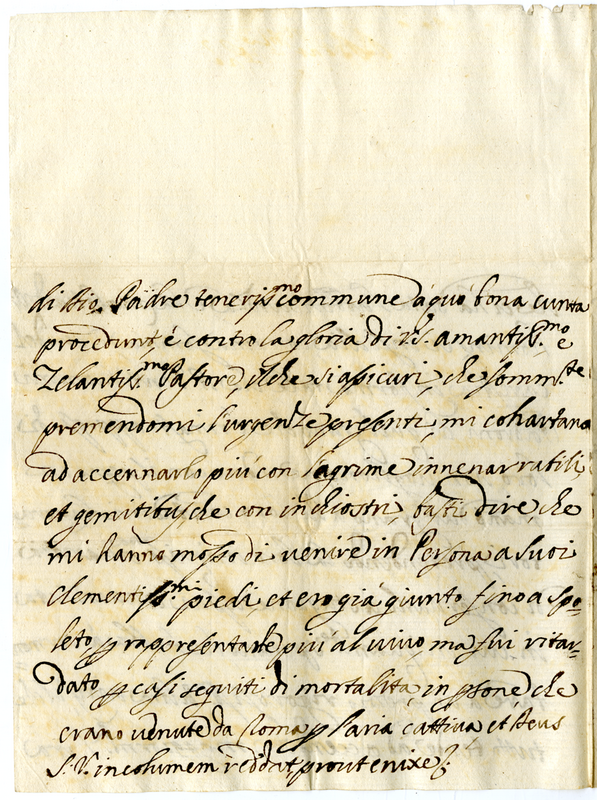 di Dio Padre teneriss.mo commune à quo bona cunta
procedunt, é contro la gloria di V.S. amantiss.mo e
Zelantiss.mo Pastore, il che si assicuri, che somm.te
premendomi l'urgenze presenti, mi cohartano
ad accennarlo più con lagrime innenarratili,
et gemitibus che con inchiostri, basti dire, che
mi hanno mosso di venire in Persona a suoi
Clementiss.mi piedi, et ero già giunto fino a Spo-
leto, p rappresentarle più al vivo, ma fui ritar-
dato p casi seguiti di mortalità, in psone che
erano venute da Roma p l'aria cattiva et Deus
S.V. incolumem reddat, prout enixe